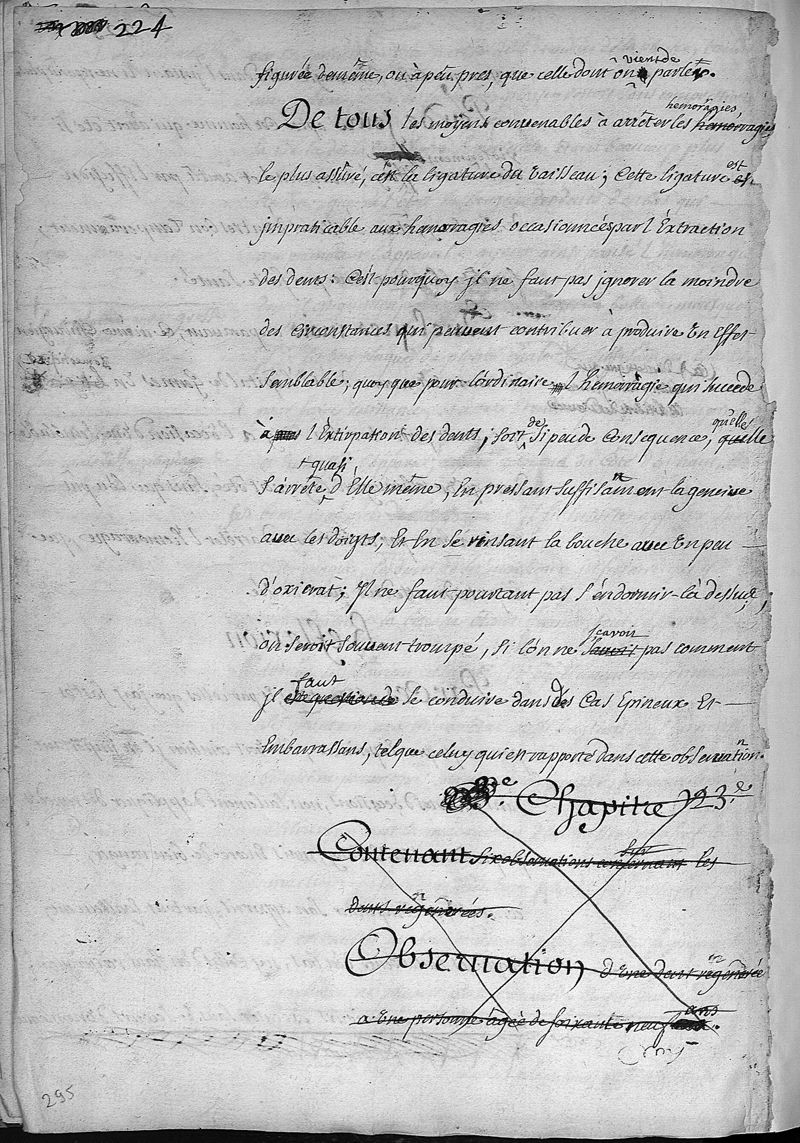 224
figurée de même, ou à peu pres, que celle dont on vient de parler.
De tous les moyens convenables à arrêter les hemorragies hemorragies
le plus assûre, c'est la ligature du vaisseau; Cette ligature est
jmpraticable aux hemorragies occasionnées par l'Extraction
des dents: C'est pourquoy jl ne faut pas jgnorer la moindre
des circonstances qui peuvent contribuer à produire un Effet
semblable; quoy que pour l'ordinaire, l'hemorâgie qui succede
à l'Extirpation des dents, soit de si peu de consequence, qu'elle quelle
s'arrête quasi d'Elle même, En pressant suffisamment la gencive
avec les doigts, Et En se rinsant la bouche avec un peu
d'oxicrat; Jl ne faut pourtant pas s'endormir-là dessus;
on seroit souvent trompé, si l'on ne scavoit pas comment
jl faut se conduire dans des Cas Epineux Et
Embarrassans, tel que celuy qui est rapporté dans cette observation.
Chapitre 23.e
Contenant six observations sur concernant les
dents régénérées.
Observation d'une dent regénérée
a une personne âgée de soixante neuf ans.
295